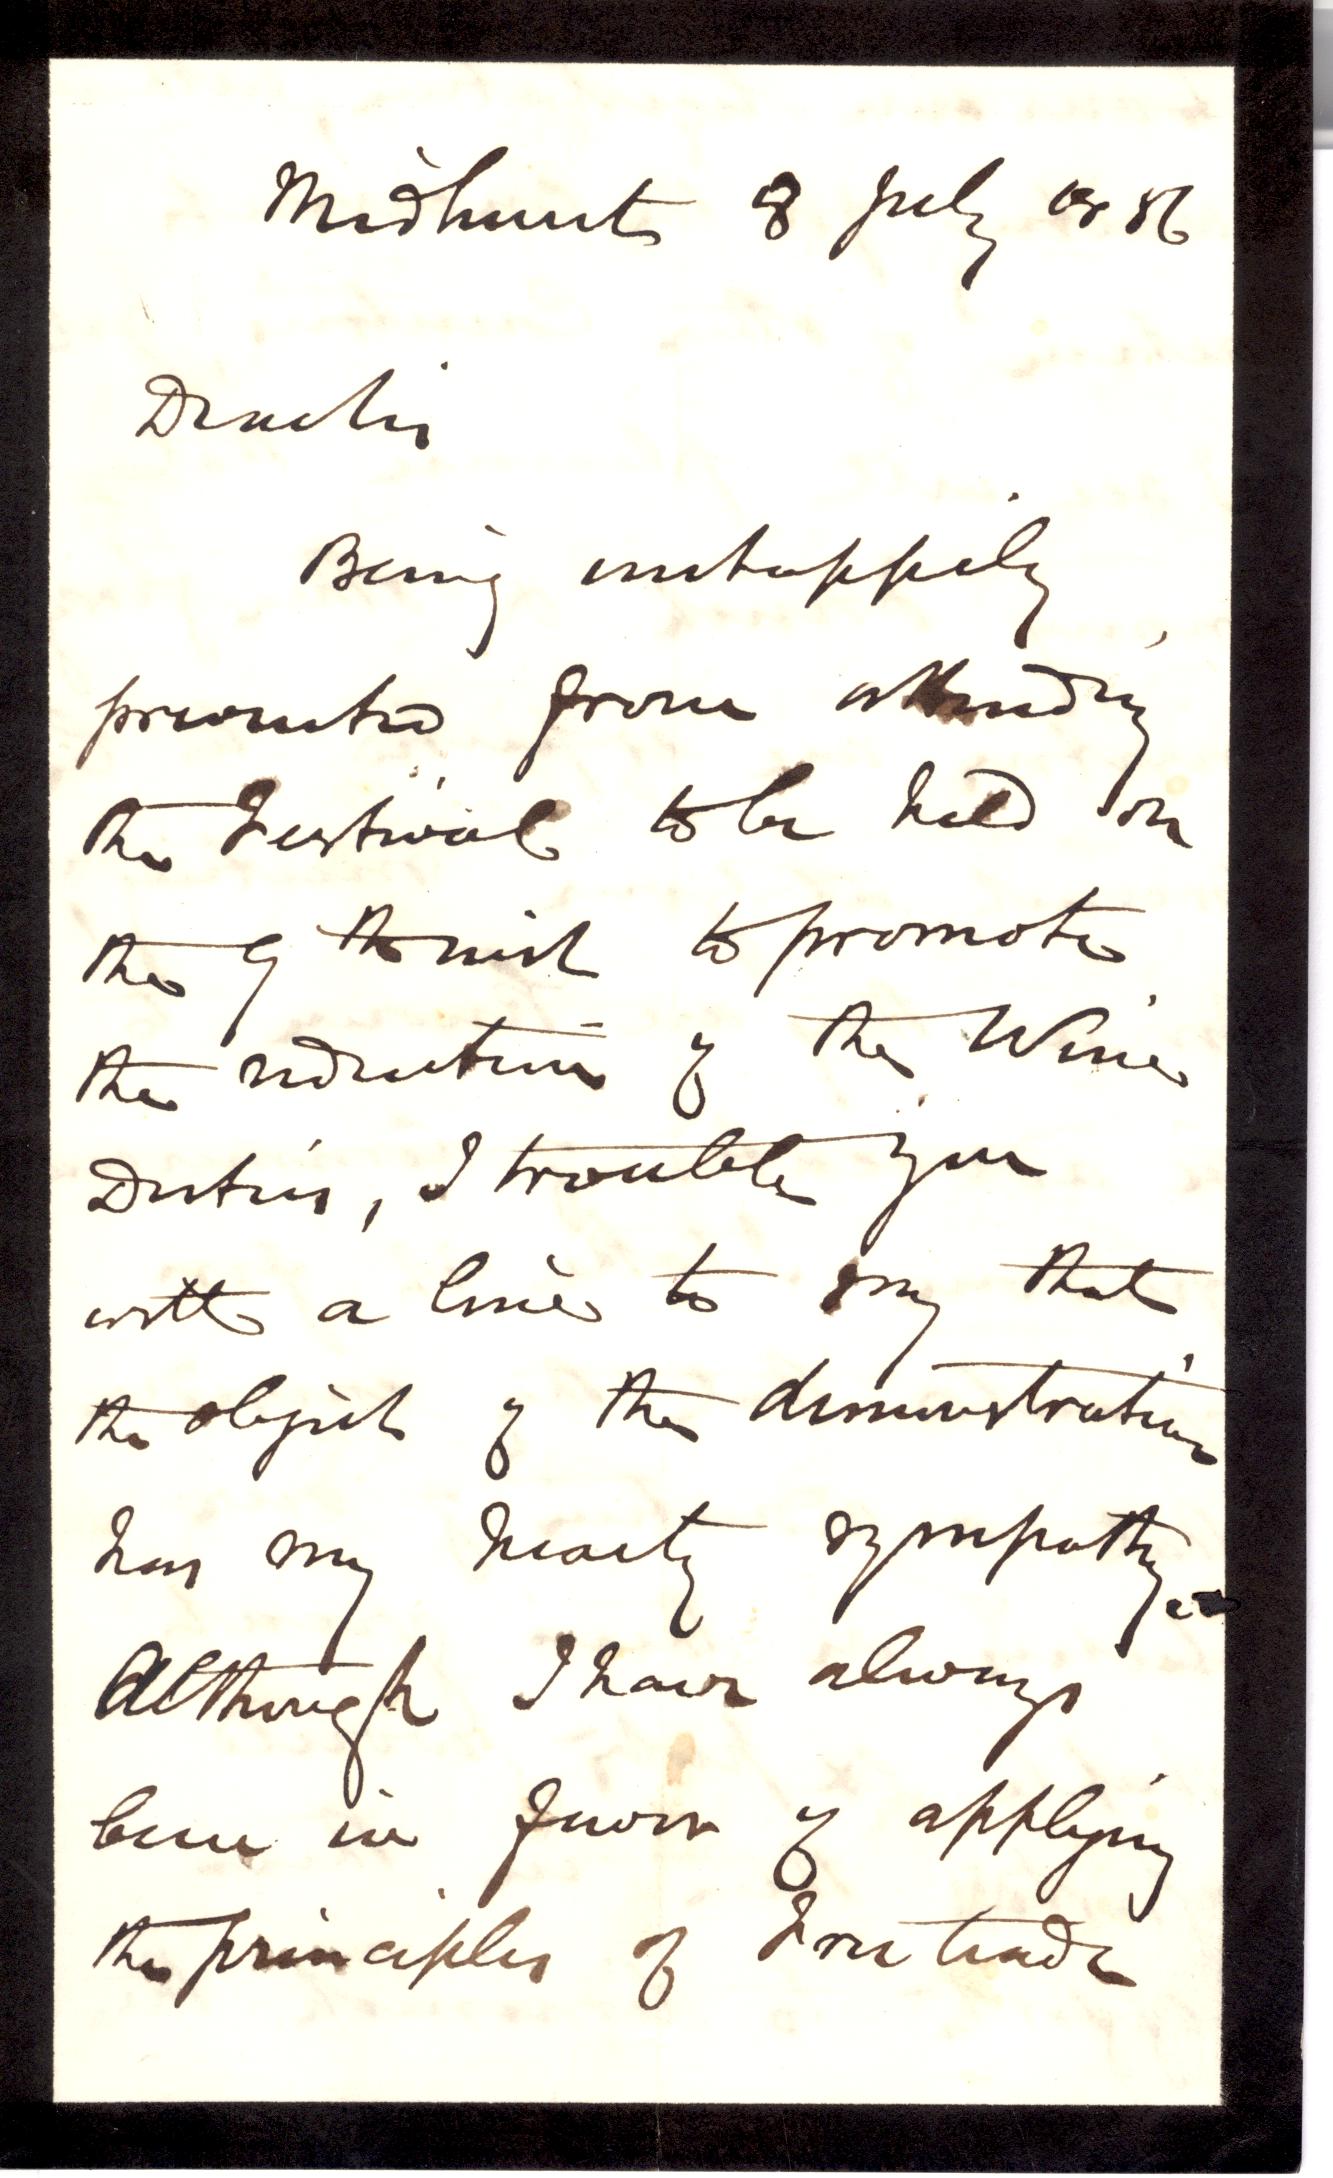 Midhurst 8 July 1856
Dear Sir
Being unhappily
prevented from attending
the Festival to be held on
the 9th inst to promote
the reduction of the Wine
Duties, I trouble you
with a line to say that
the object of the demonstration
has my hearty sympathy. -
Although I have always
been in favor of applying
the principles of Free trade